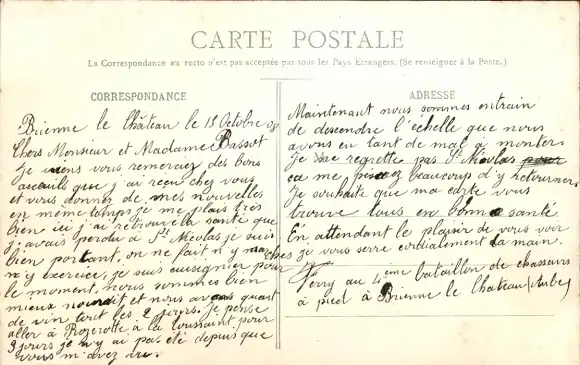 CARTE POSTALE
La Correspondance au recto n'est pas acceptée par tous les Pays Etrangers. (Se renseigner à la Poste.)
CORRESPONDANCE
Brienne le Château le 18 Octobre 08
Chers Monsieur et Madame Bassot
Je viens vous remerciez des bons
accueils que j'ai reçu chez vous
et vous donner de mes nouvelles
en même temps je me plais très
bien ici j'ai retrouvé la santé que
j'avais perdu à St Nicolas je suis
bien portant, on ne fait n'y marches
n'y exercice, je suis enseignier pour
le moment, nous sommes bien
mieux nourrit et nous avons quart
de vin tout les 2 jours. Je pense
aller à Rozerotte à la toussaint pour
3 jours je n'y ai pas été depuis que
vous m'avez vu.
ADRESSE
Maintenant nous sommes entrain
de descendre l'échelle que nous
avons eu tant de mal à monter
Je ne regrette pas St Nicolas pour
ça me beaucoup d'y retourner
Je souhaite que ma carte vous
trouve tous en bonne santé.
En attendant le plaisir de vous voir
je vous serre cordialement la main.
Ferry au 4ème bataillon de chasseurs
à pied à Brienne le Château (Aube)